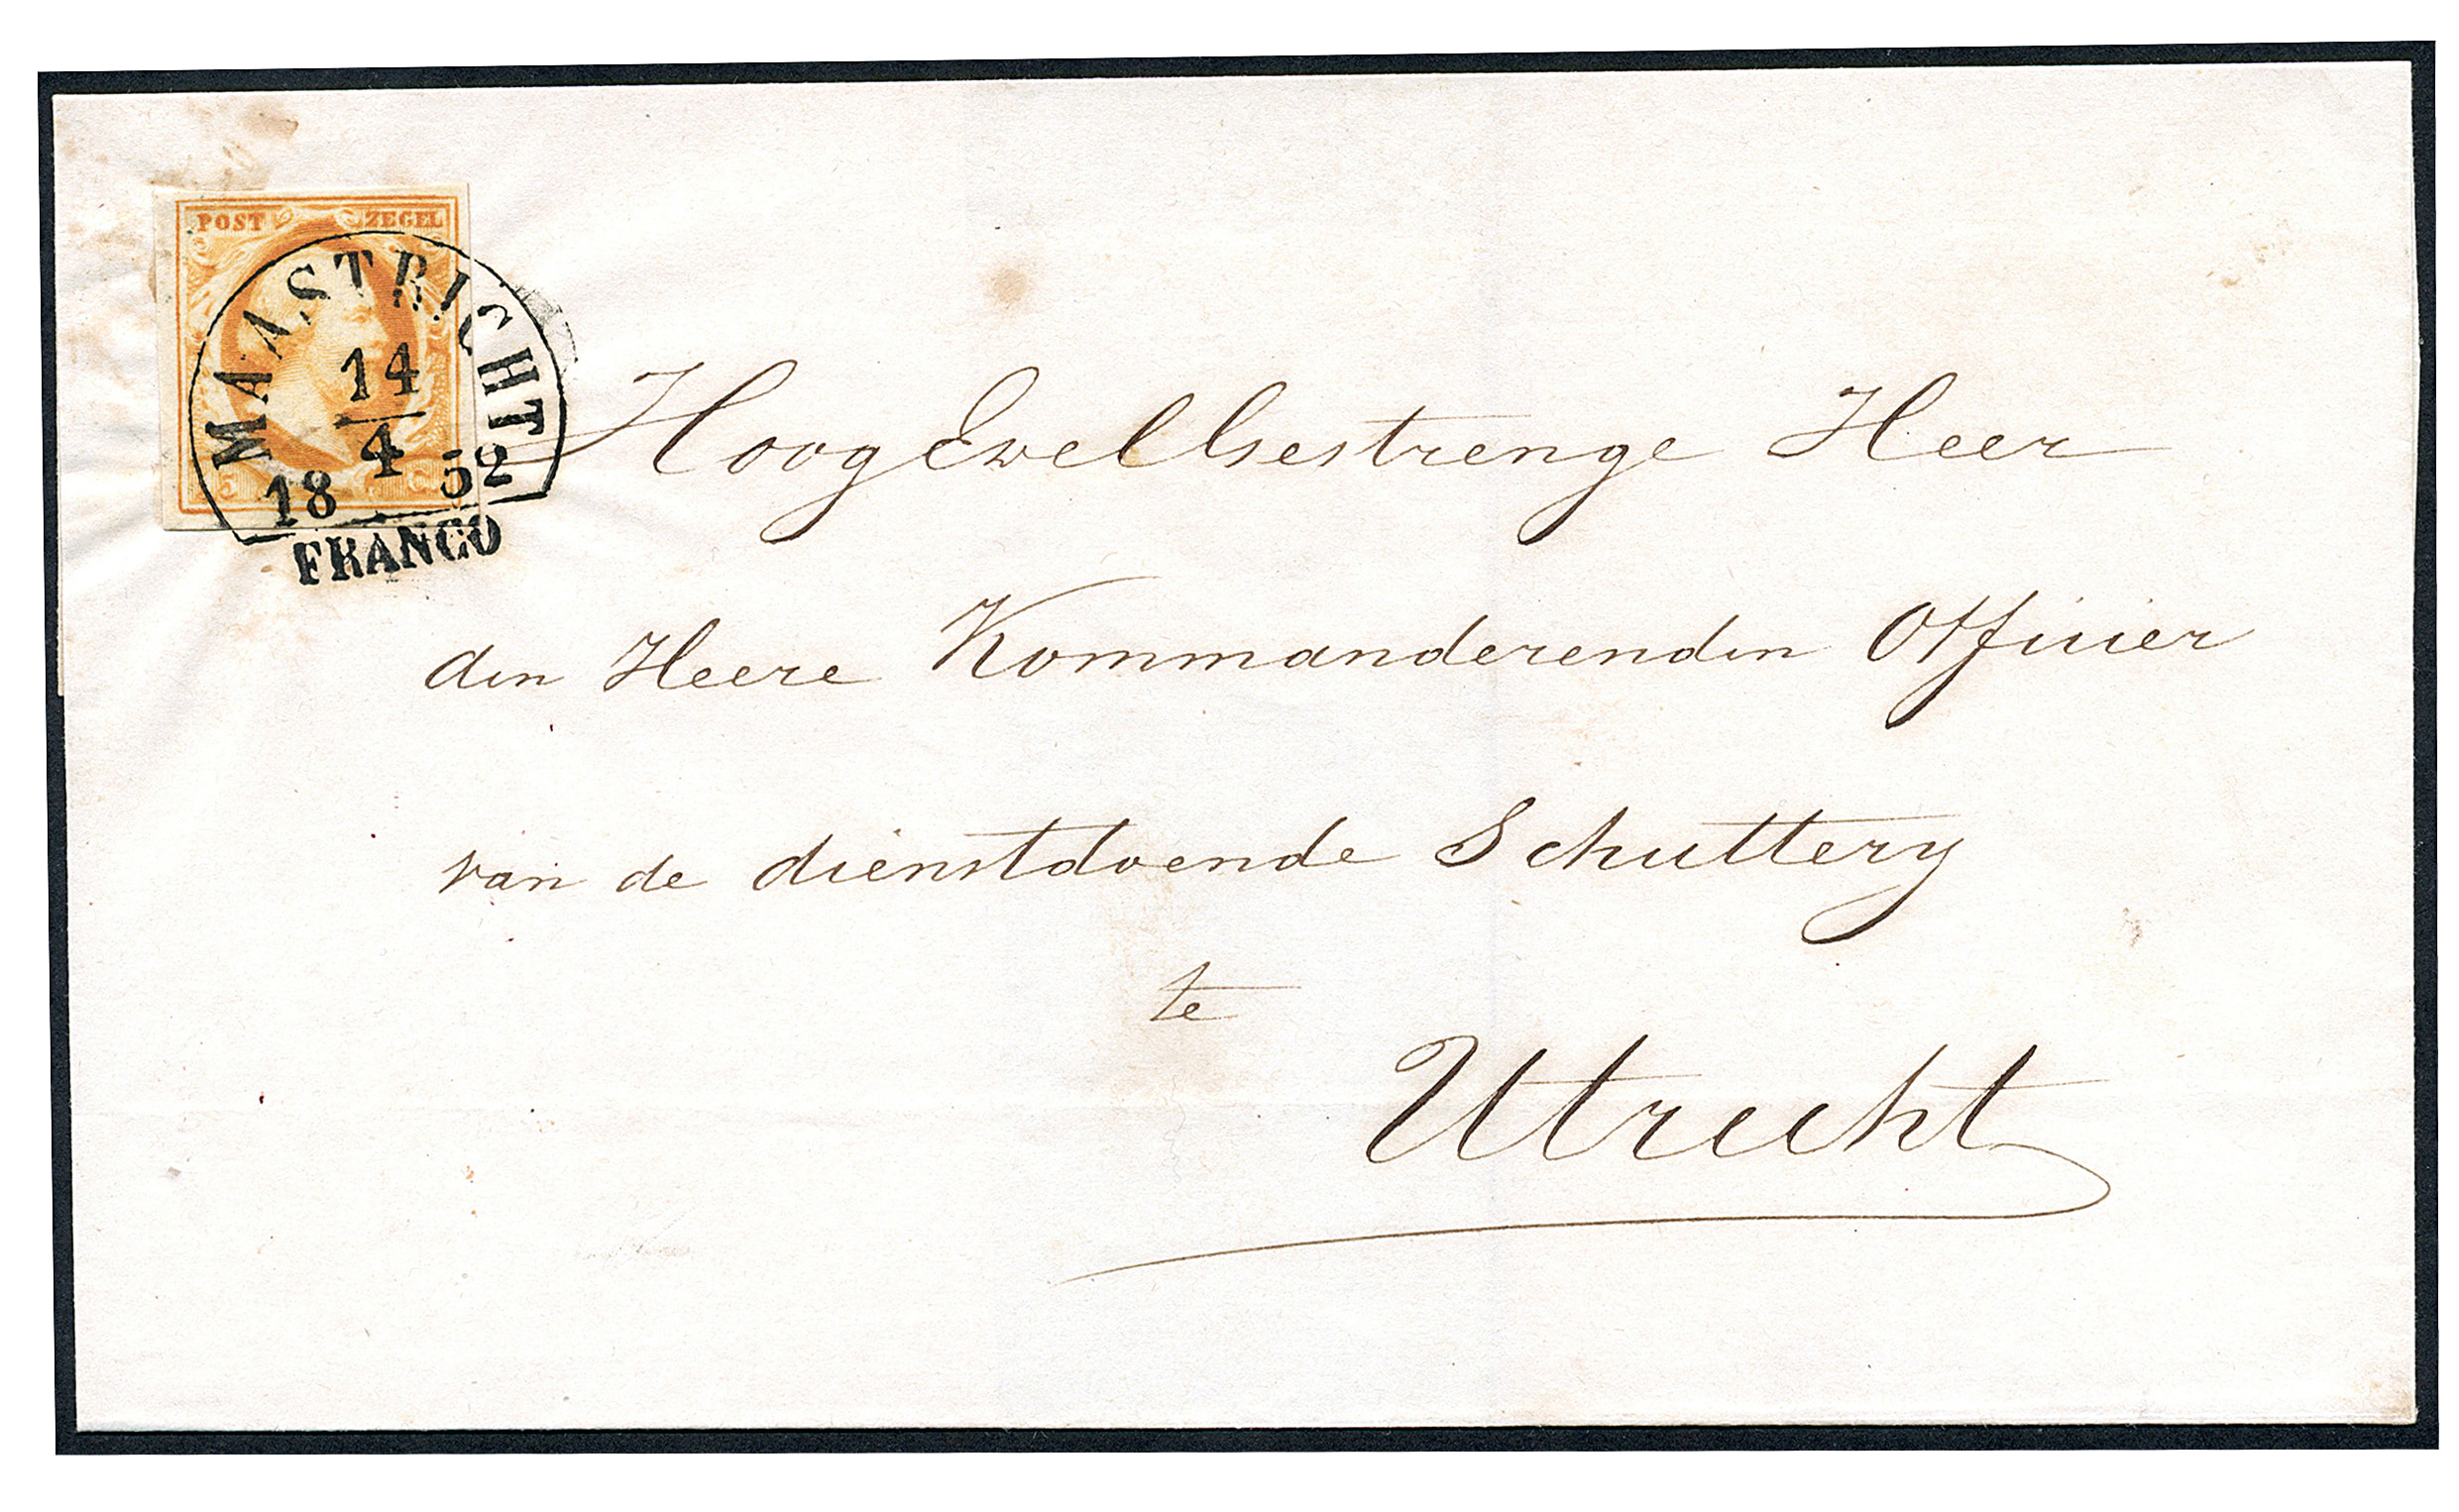 POST ZEGEL
MAASTRICHT
14
4
18 52
5 C
FRANCO
HoogEwelGestrenge Heer
den Heere Kommanderenden Officier
van de dienstdoende Schuttery
te
Utrecht